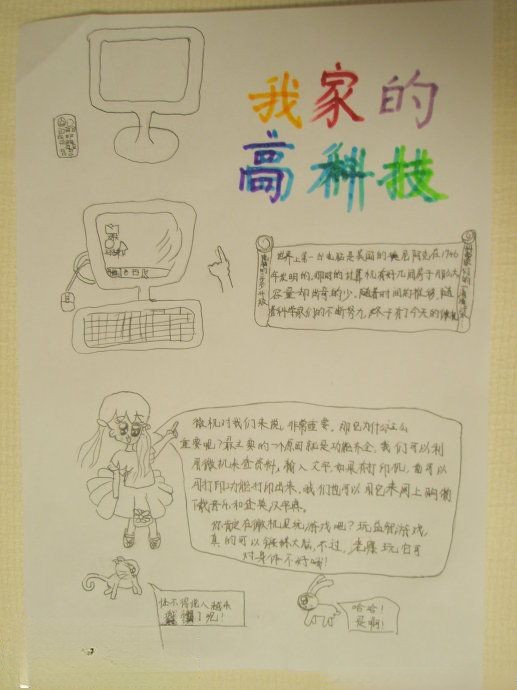 我家的
高科技
世界上第一台电脑是美国的 尼阿克在1946
年发明的,那时的计算机有好几间房子那么大
容量却出奇的少。随着时间的推移,随
着科学家们的不断努力,终于有了今天的微机
微机对我们来说,非常重要。那它为什么这么
重要呢?最主要的一个原因就是功能齐全。我们可以利
用微机来查资料,输入文字,如果有打印机,番可以
用打印功能打印出来。我们也可以用它来网上购物
下载音乐和查英汉字典。
你肯定在微机里玩游戏吧?玩益智游戏,
真的可以锻炼大脑。不过,老爱玩它可
对身体不好哦!
怪不得人越来
了呢!
哈哈!
是啊!